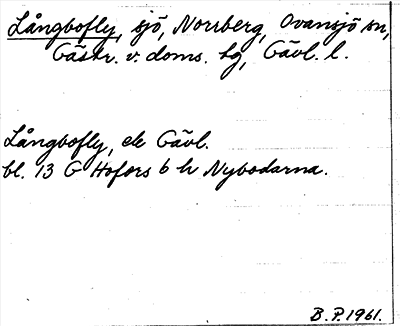 Långbofly, sjö, Norrberg, Ovansjö sn,
Gästr. v. doms. tg, Gävl. l.
Långbofly, ek Gävl.
bl. 13 G Hofors 6 h Nybodarna.
B.P. 1961.